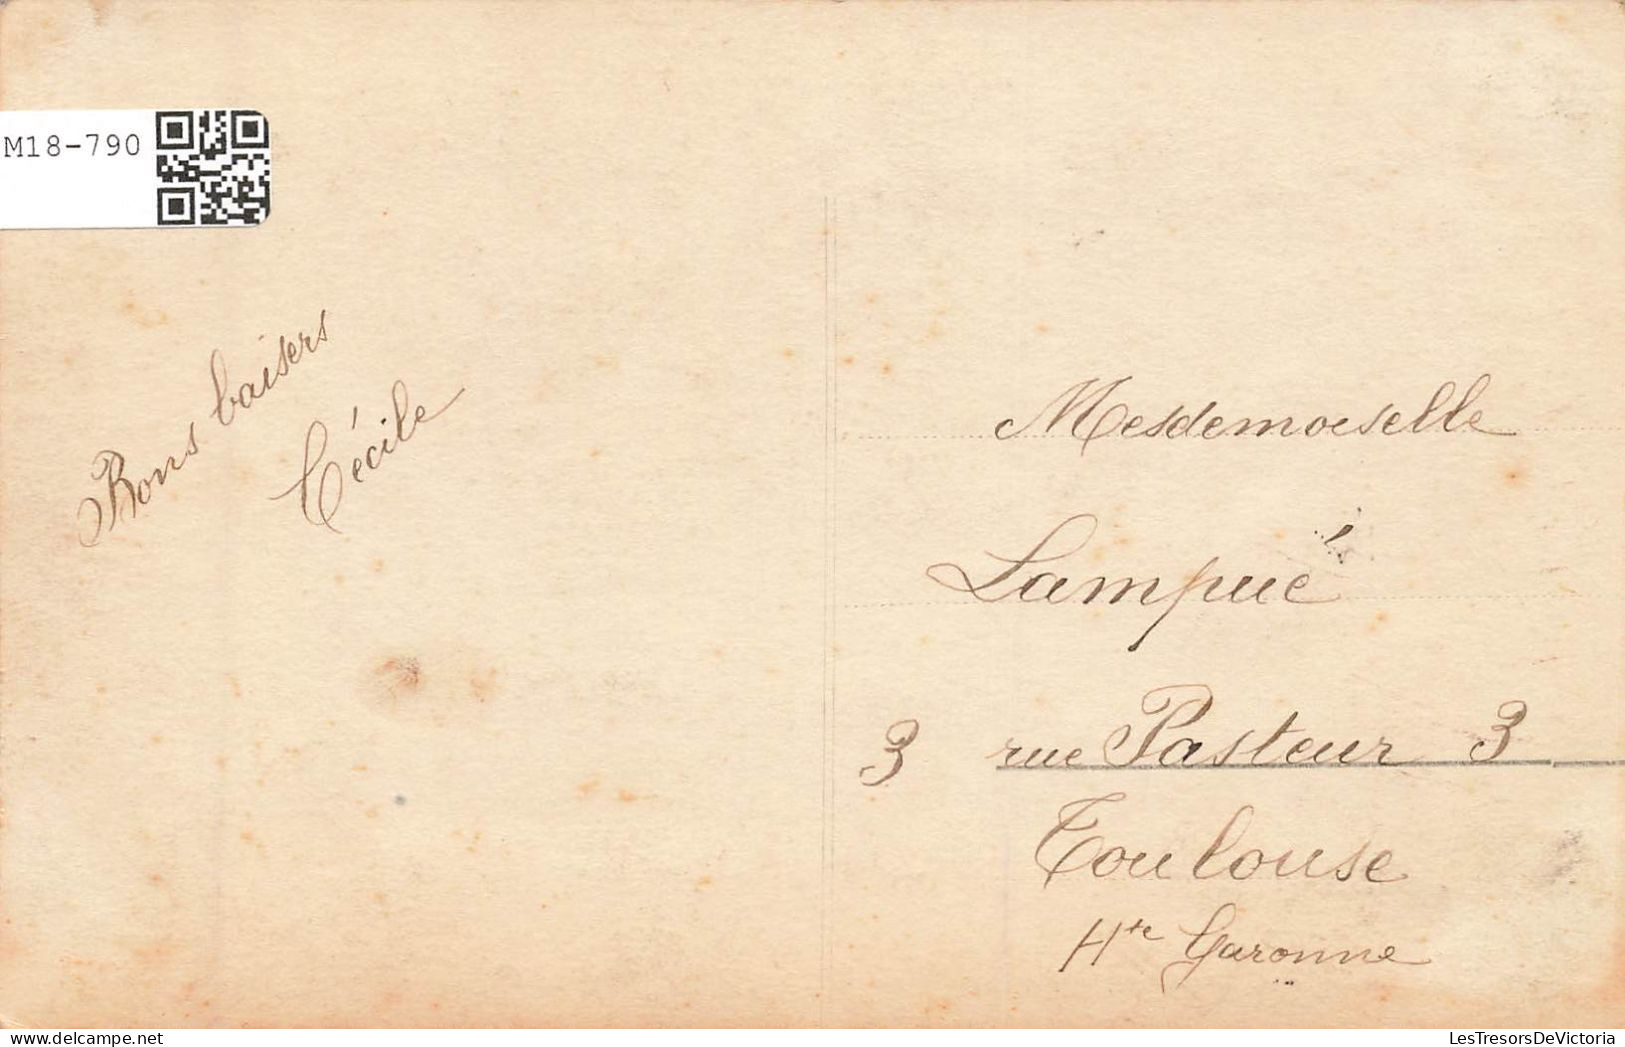 M18-790
Bons baisers
Cécile
Mesdemoiselle
Lampué
3 rue Pasteur 3
Toulouse
Hte Garonne
LesTresorsDeVictoria